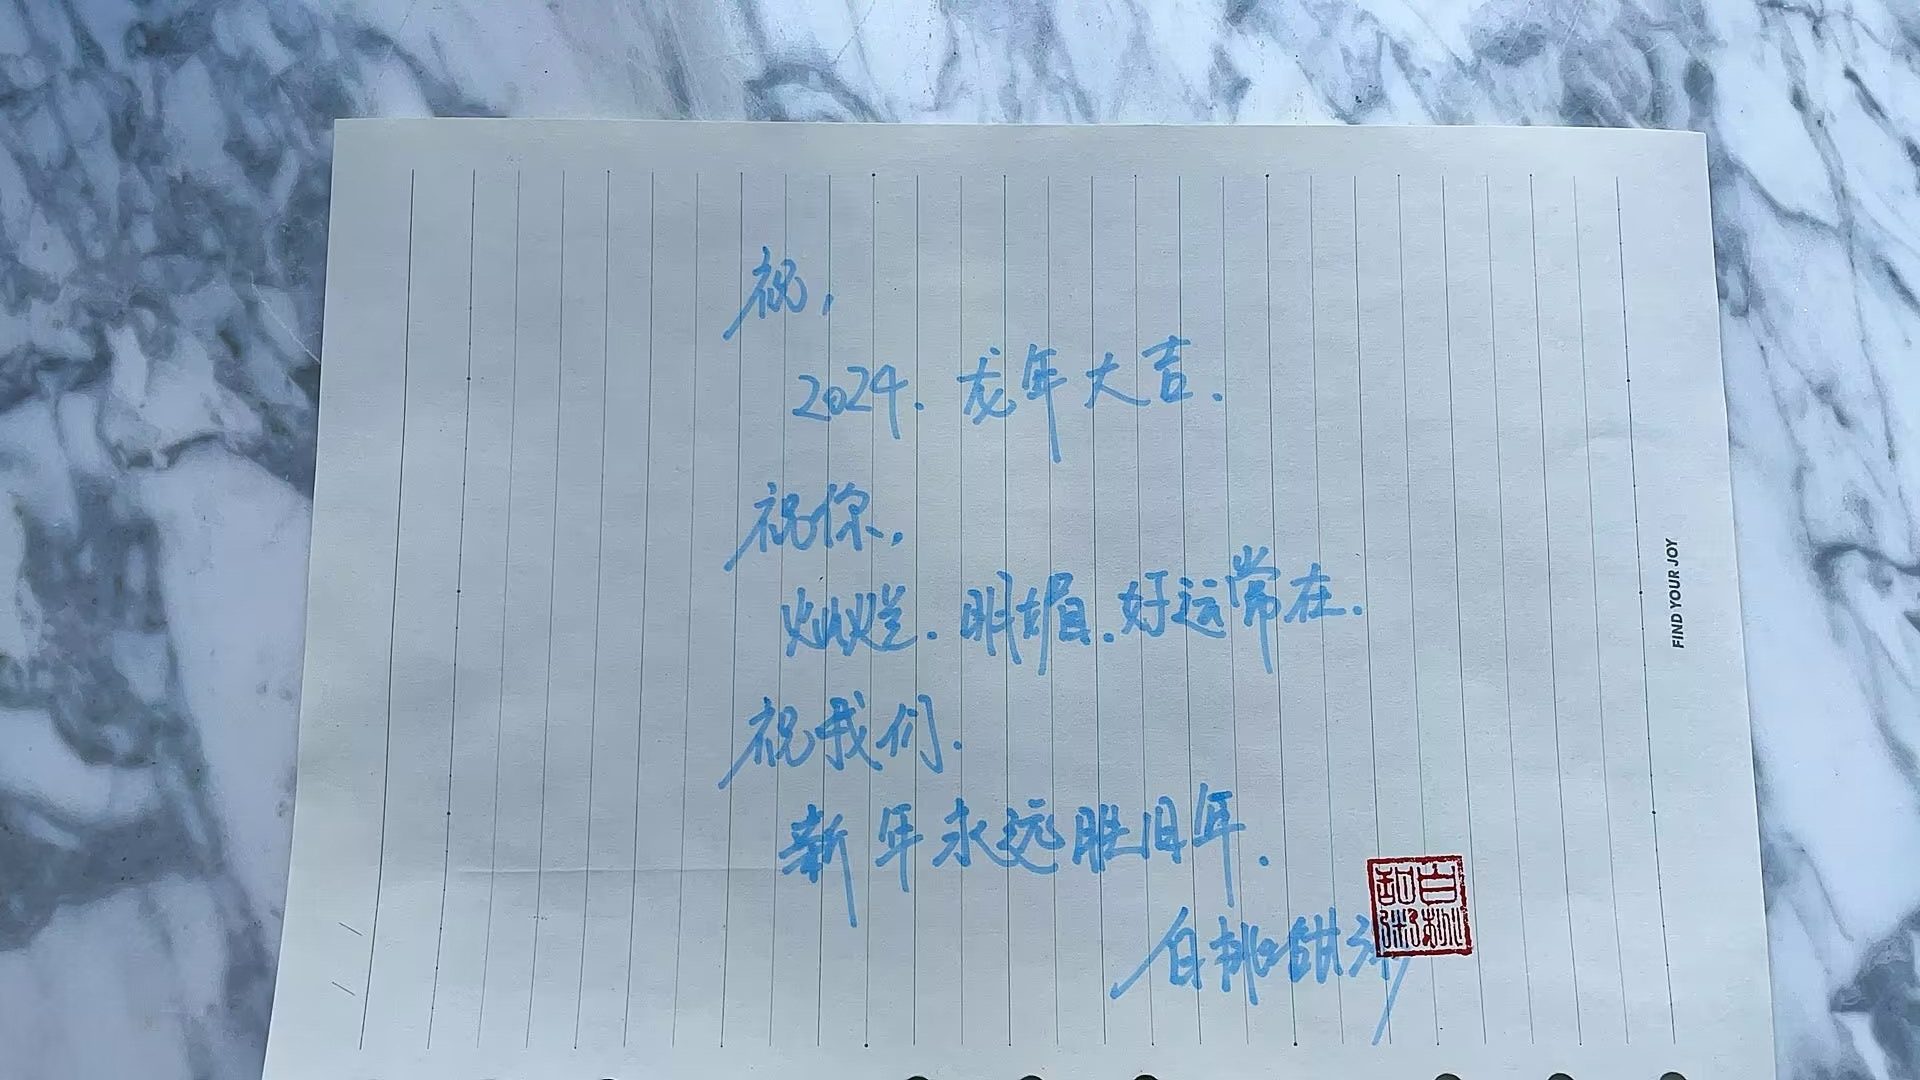 祝，
2024. 龙年大吉.
祝你，
灿烂. 明媚. 好运常在.
祝我们.
新年永远胜旧年.
白桃甜粥
FIND YOUR JOY